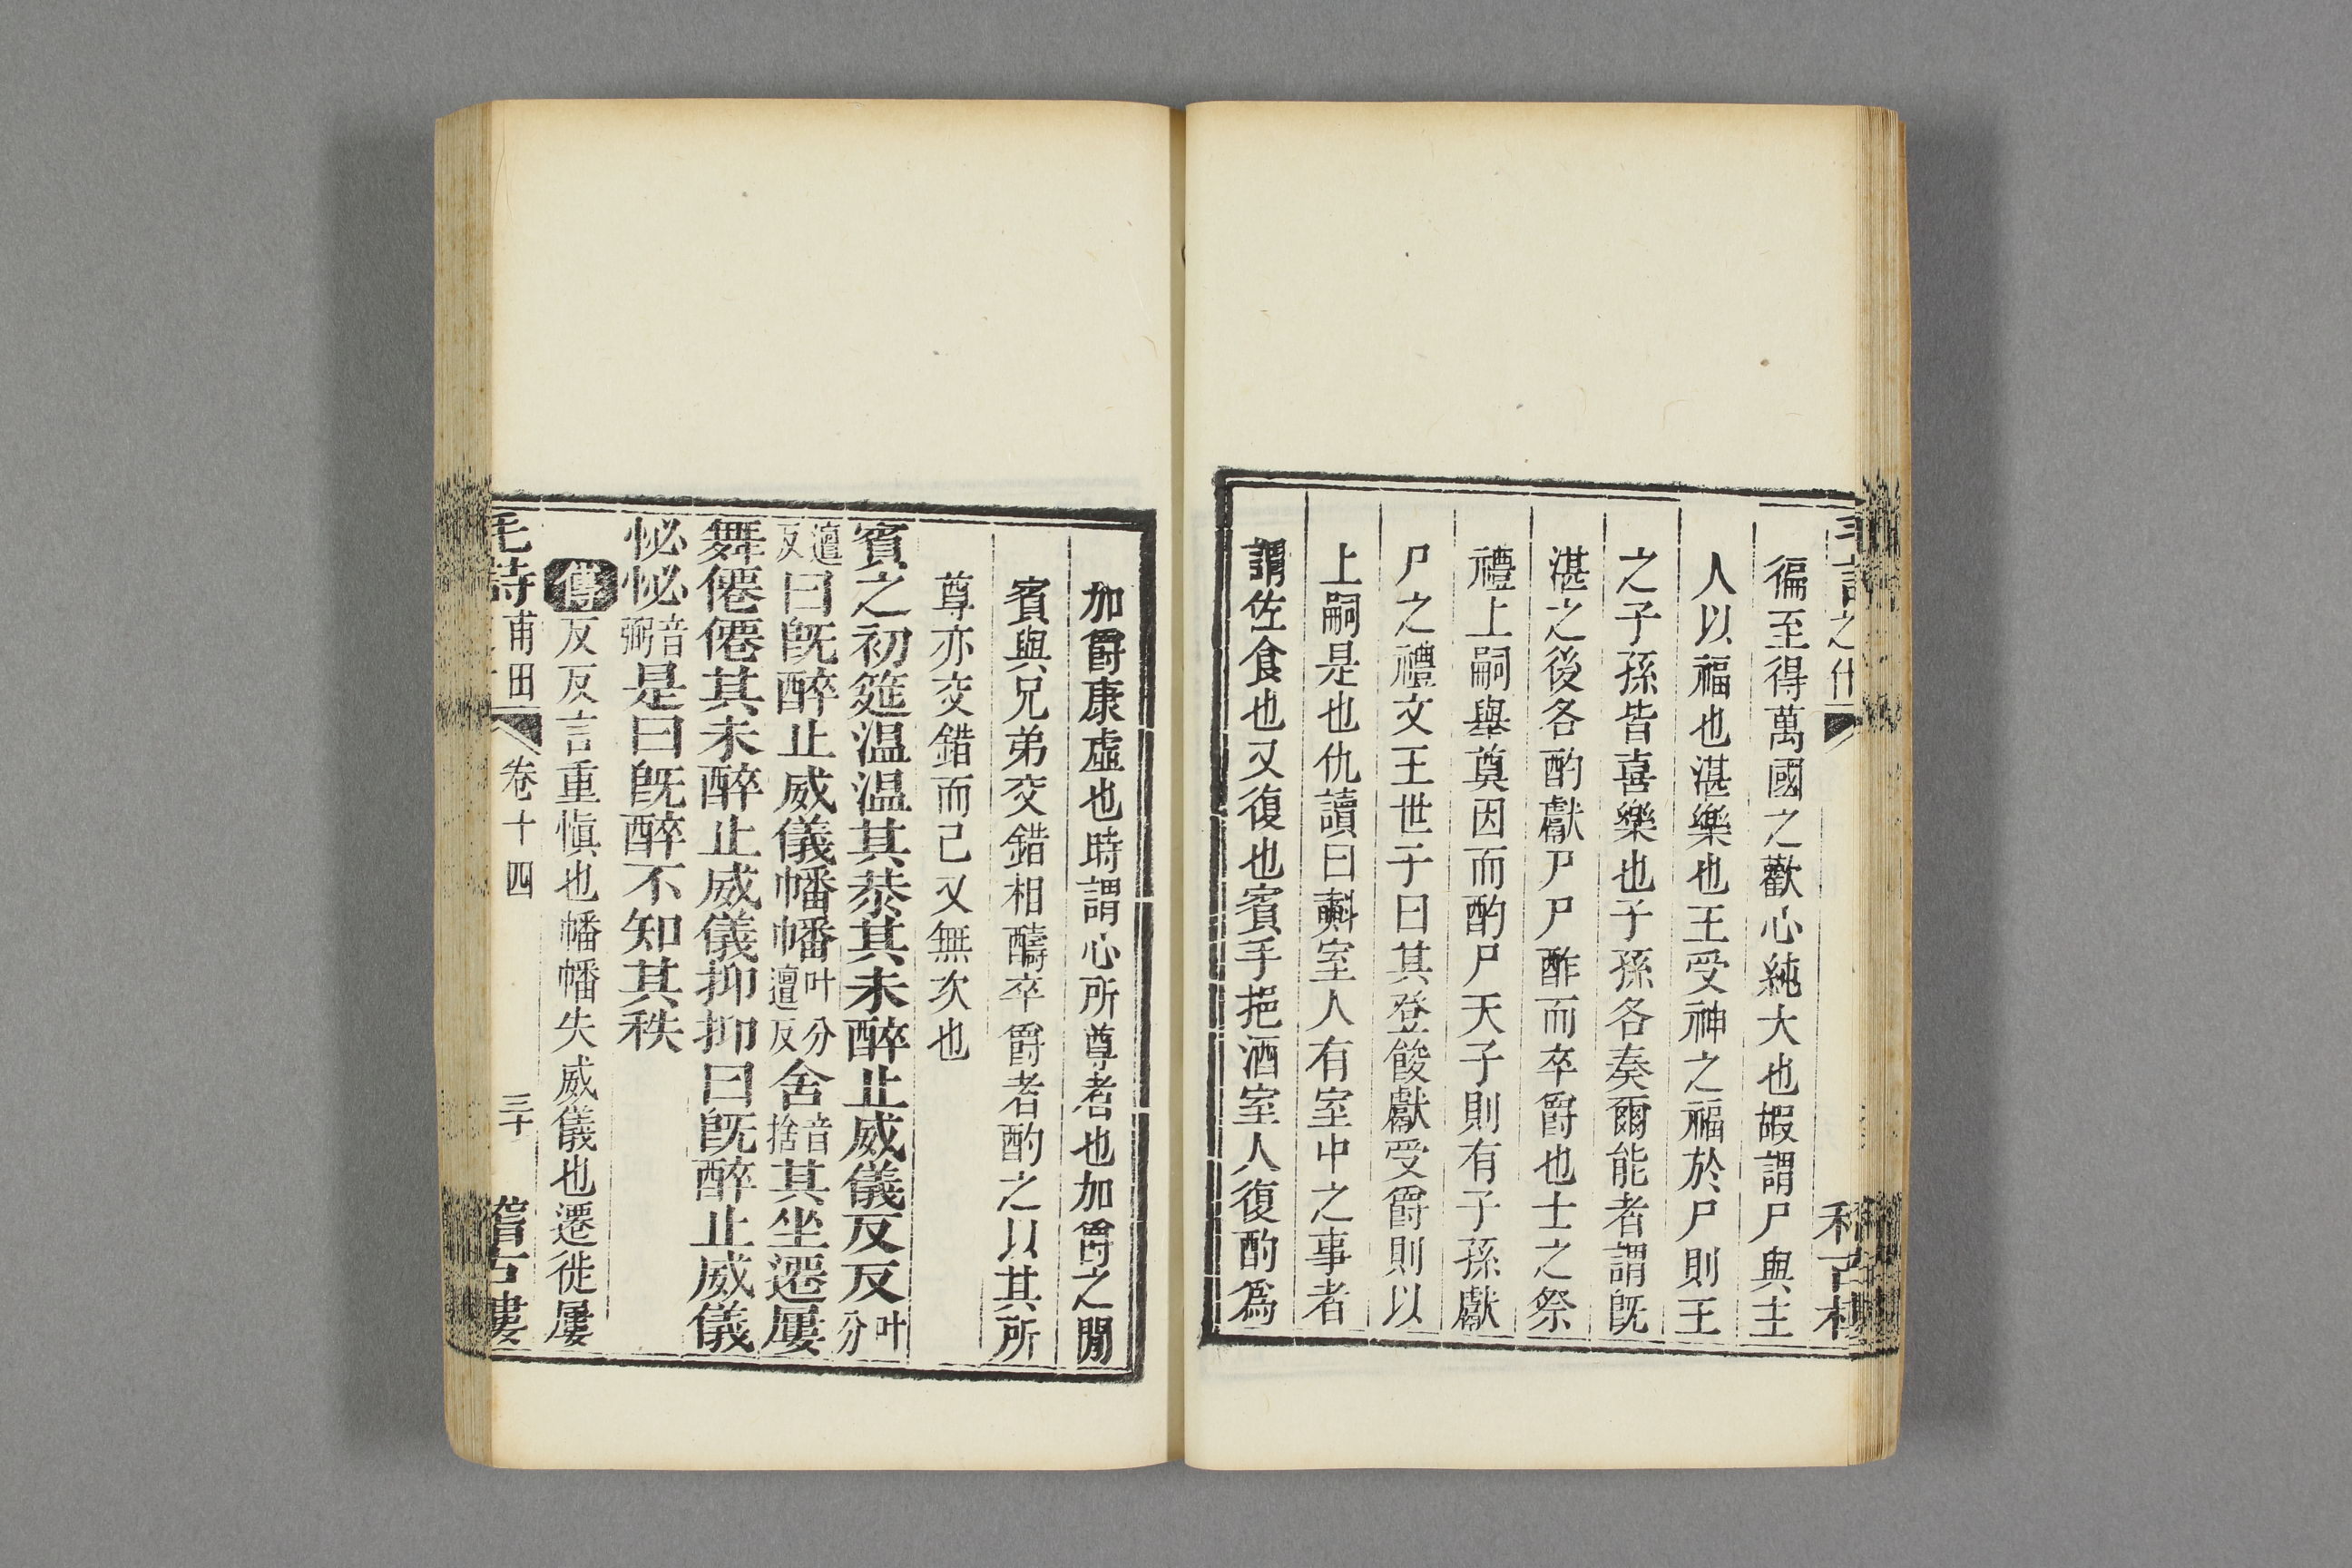 之什
徧至得萬國之歡心純大也嘏謂尸與主
人以福也湛樂也王受神之福於尸則王
之子孫皆喜樂也子孫各奏爾能者謂旣
湛之後各酌獻尸尸酢而卒爵也士之祭
禮上嗣舉奠因而酌尸天子則有子孫獻
尸之禮文王世子曰其登餕獻受爵則以
上嗣是也仇讀曰㪺室人有室中之事者
謂佐食也又復也賓手挹酒室人復酌爲
加爵康虛也時謂心所尊者也加爵之閒
賓與兄弟交錯相醻卒爵者酌之以其所
尊亦交錯而已又無次也
賓之初筵温温其恭其未醉止威儀反反叶分
邅反曰旣醉止威儀幡幡叶分邅反舍音捨其坐遷屢
舞僊僊其未醉止威儀抑抑曰旣醉止威儀
怭怭音弼是曰旣醉不知其秩
傳反反言重愼也幡幡失威儀也遷徙屢
毛詩 甫田 卷十四 三十 稽古樓